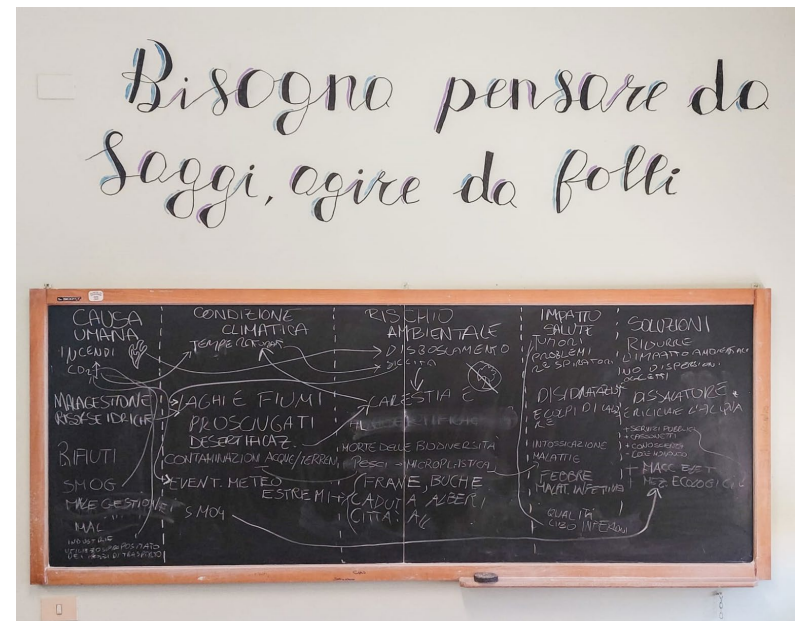 Bisogna pensare da
Saggi, agire da folli
CAUSA
UMANA
INCENDI
CO2
MALAGESTIONE
RISORSE IDRICHE
RIFIUTI
SMOG
MALE GESTIONE
MAL
INDUSTRIE
DEI MEZZI DI TRASPORTO
CONDIZIONE
CLIMATICA
TEMPERATURA
LAGHI E FIUMI
PROSCIUGATI
DESERTIFICAZ.
CONTAMINAZIONI ACQUE/TERRENI
EVENT. METEO
ESTREMI
SMOG
RISCHIO
AMBIENTALE
DISBOSCAMENTO
SICCITÀ
CARESTIA E
MORTE DELLE BIODIVERSITÀ
PESCI - MICROPLASTICA
FRANE, BUCHE
CADUTA ALBERI
CITTÀ: ALL
IMPATTO
SALUTE
TUMORI
PROBLEMI
RESPIRATORI
INTOSSICAZIONE
MALATTIE
FEBBRE
MALATT. INFETTIVE
QUALITÀ
CIBO INFERIORI
SOLUZIONI
RIDURRE
L'IMPATTO AMBIENTALE
NO DISPERSIONI
OGGETTI
DISSALATORE
+ SERVIZI PUBBLICI
+ CASSONETTI
+ CONOSCENZA
+ MACC. ELET
MEZ ECOLOGICI